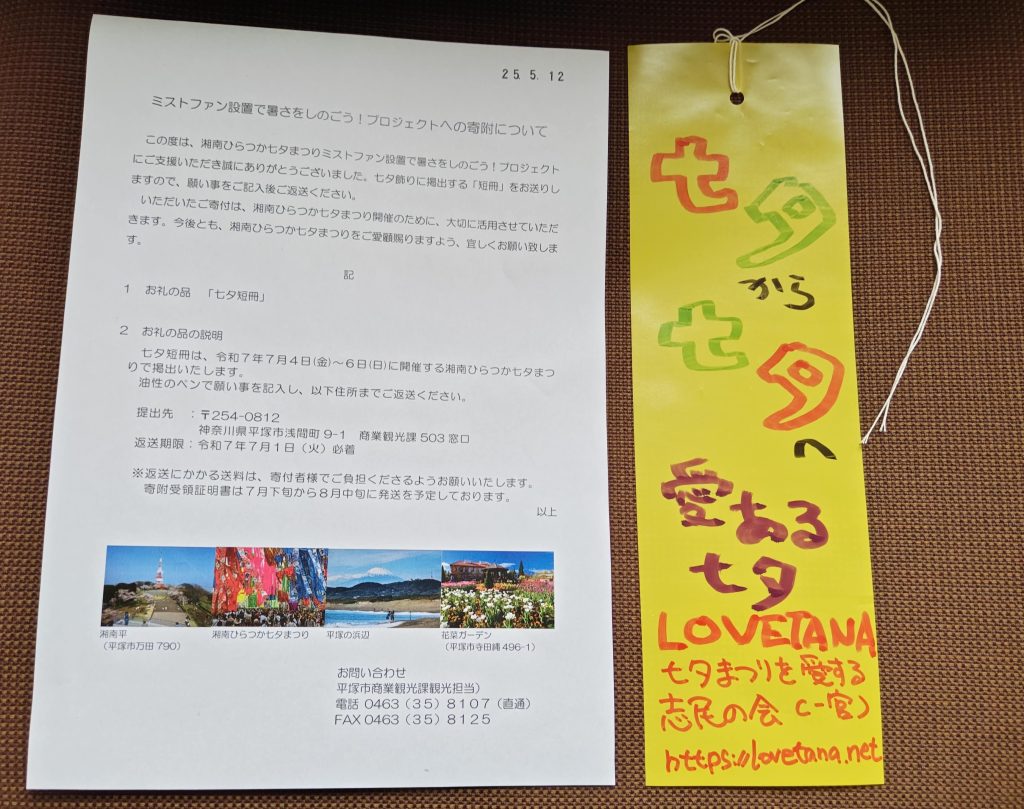 25.5.12
ミストファン設置で暑さをしのごう！プロジェクトへの寄附について
この度は、湘南ひらつか七夕まつりミストファン設置で暑さをしのごう！プロジェクト
にご支援いただき誠にありがとうございました。七夕飾りに掲出する「短冊」をお送りし
ますので、願い事をご記入後ご返送ください。
いただいたご寄付は、湘南ひらつか七夕まつり開催のために、大切に活用させていただ
きます。今後とも、湘南ひらつか七夕まつりをご愛顧賜りますよう、宜しくお願い致しま
す。
記
1 お礼の品 「七夕短冊」
2 お礼の品の説明
七夕短冊は、令和7年7月4日(金)～6日(日)に開催する湘南ひらつか七夕まつ
りで掲出いたします。
油性のペンで願い事を記入し、以下住所までご返送ください。
提出先 ：〒254-0812
神奈川県平塚市浅間町9-1 商業観光課503窓口
返送期限：令和7年7月1日（火）必着
※返送にかかる送料は、寄付者様でご負担くださるようお願いいたします。
寄附受領証明書は7月下旬から8月中旬に発送を予定しております。
以上
湘南平
（平塚市万田790）
湘南ひらつか七夕まつり
平塚の浜辺
花菜ガーデン
（平塚市寺田縄496-1）
お問い合わせ
平塚市商業観光課観光担当）
電話 0463（35）8107（直通）
FAX 0463（35）8125
七夕
から
七夕
へ
愛ある
七夕
LOVETANA
七夕まつりを愛する
志民の会（一宮）
https://lovetana.net